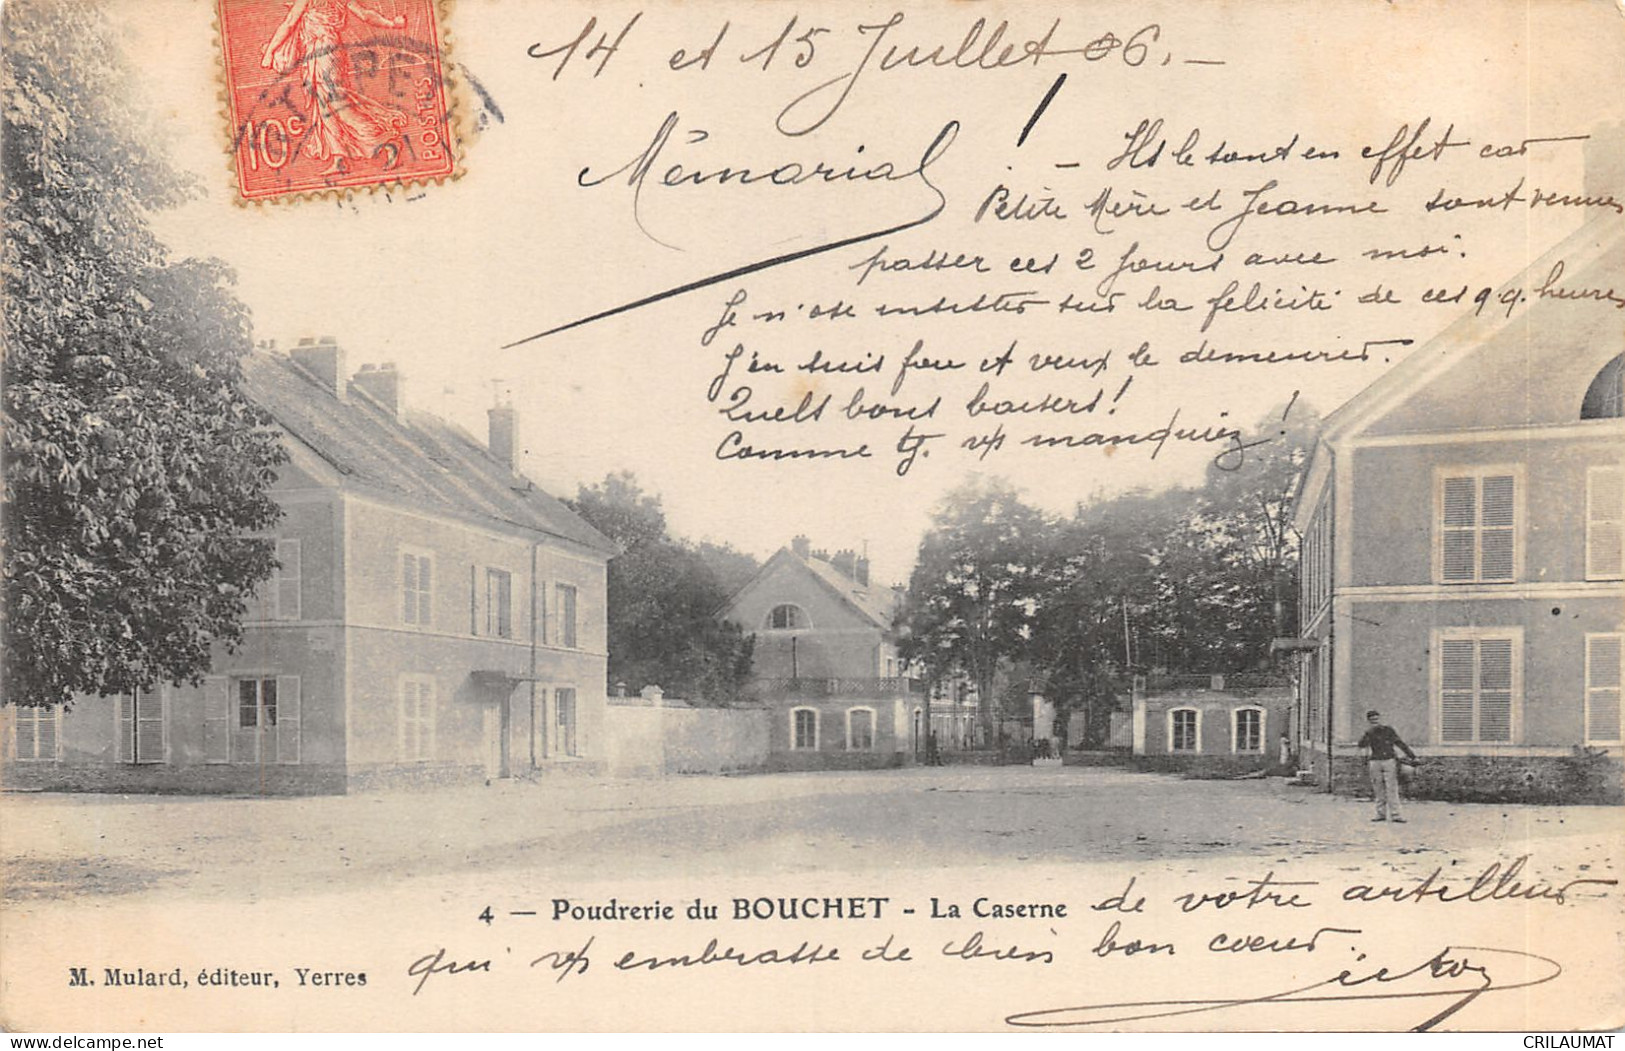 14 et 15 Juillet 06. –
Mémorial !
– Ils le sont en effet car
Petite Mère et Jeanne sont venues
passer ces 2 jours avec moi.
Je n'ose insister sur la félicité de ces q.q. heures
J'en suis fou et veux le demeurer.
Quels bons baisers !
Comme tt. vs manquiez !
10c
POSTES
4 — Poudrerie du BOUCHET - La Caserne
de votre artilleur
qui vs embrasse de bien bon cœur.
M. Mulard, éditeur, Yerres
CRILAUMAT